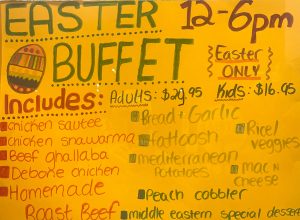 EASTER 12-6pm
BUFFET
Easter
ONLY
Includes: Adults: $29.95 Kids: $16.95
Chicken sautee
Chicken shawarma
Beef ghallaba
Debone chicken
Homemade
Roast Beef
Bread + Garlic
Fattoosh
mediterranean
Potatoes
Peach cobbler
middle eastern special desser
Rice/
veggies
mac n
cheese